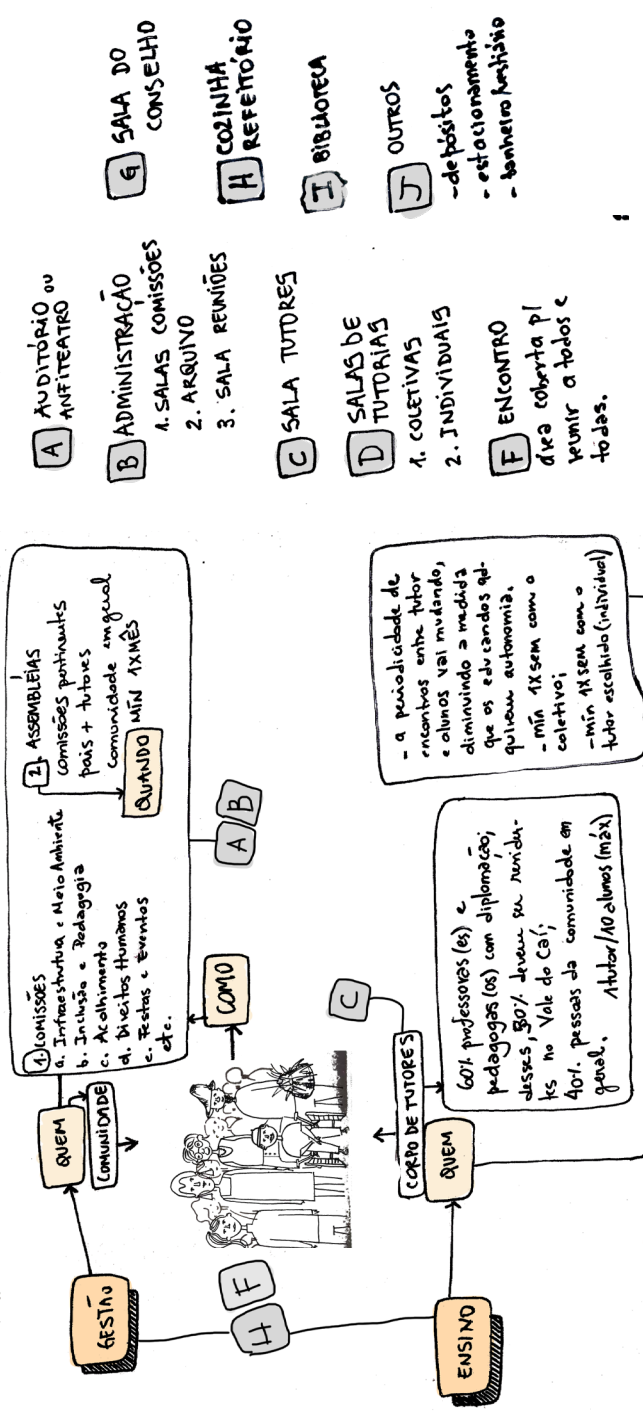 GESTÃO
QUEM
COMUNIDADE
1. COMISSÕES
a. Infraestrutura e Meio Ambiente
b. Inclusão e Pedagogia
c. Acolhimento
d. Direitos Humanos
e. Festas e Eventos
etc.
2. ASSEMBLÉIAS
comissões pertinentes
pais + tutores
comunidade em geral
QUANDO MÍN 1XMÊS
A B
COMO
H F
ENSINO
C
CORPO DE TUTORES
QUEM
60% professoras(es) e
pedagogas(os) com diplomação;
desses, 80% devem ser residen-
tes no Vale do Caí;
40% pessoas da comunidade em
geral. 1 tutor/10 alunos (máx)
- a periodicidade de
encontros entre tutor
e alunos vai mudando,
diminuindo a medida
que os educandos ad-
quirem autonomia.
- mín 1X sem com o
coletivo;
- mín 1X sem com o
tutor escolhido (individual)
A AUDITÓRIO OU
ANFITEATRO
B ADMINISTRAÇÃO
1. SALAS COMISSÕES
2. ARQUIVO
3. SALA REUNIÕES
C SALA TUTORES
D SALAS DE
TUTORIAS
1. COLETIVAS
2. INDIVIDUAIS
F ENCONTRO
área coberta p/
reunir a todos e
todas.
G SALA DO
CONSELHO
H COZINHA
REFEITÓRIO
I BIBLIOTECA
J OUTROS
- depósitos
- estacionamento
- banheiro/vestiário